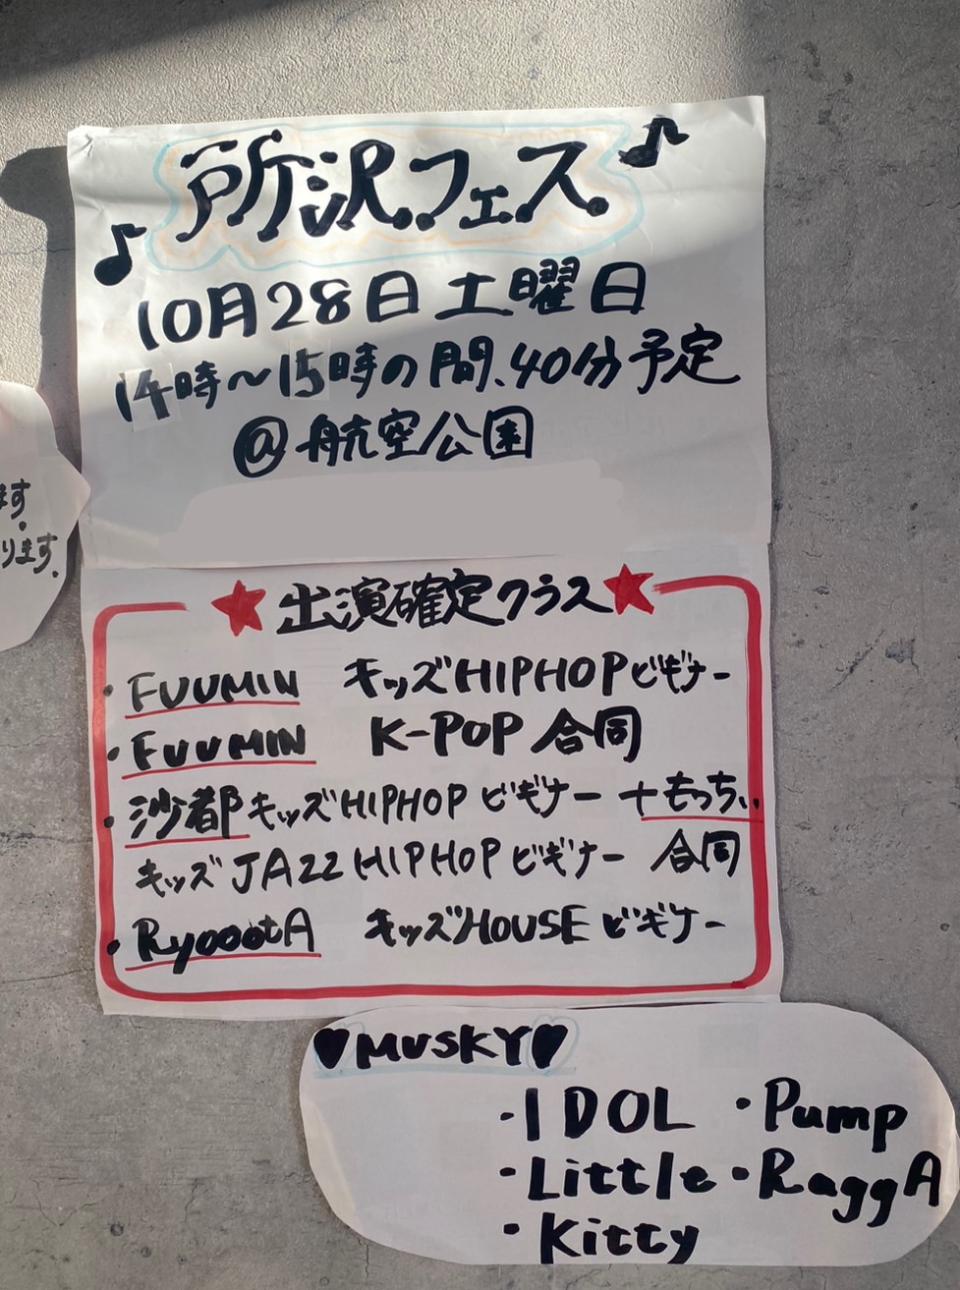 所沢フェス
10月28日土曜日
14時～15時の間、40分予定
@航空公園
ます。
ります。
★出演確定クラス★
・FUUMIN キッズHIPHOPビギナー
・FUUMIN K-POP 合同
・沙都キッズHIPHOP ビギナー +もっちぃ
キッズJAZZ HIPHOP ビギナー 合同
・RyoootA キッズHOUSE ビギナー
♥MUSKY♥
・IDOL ・Pump
・Little ・RaggA
・Kitty